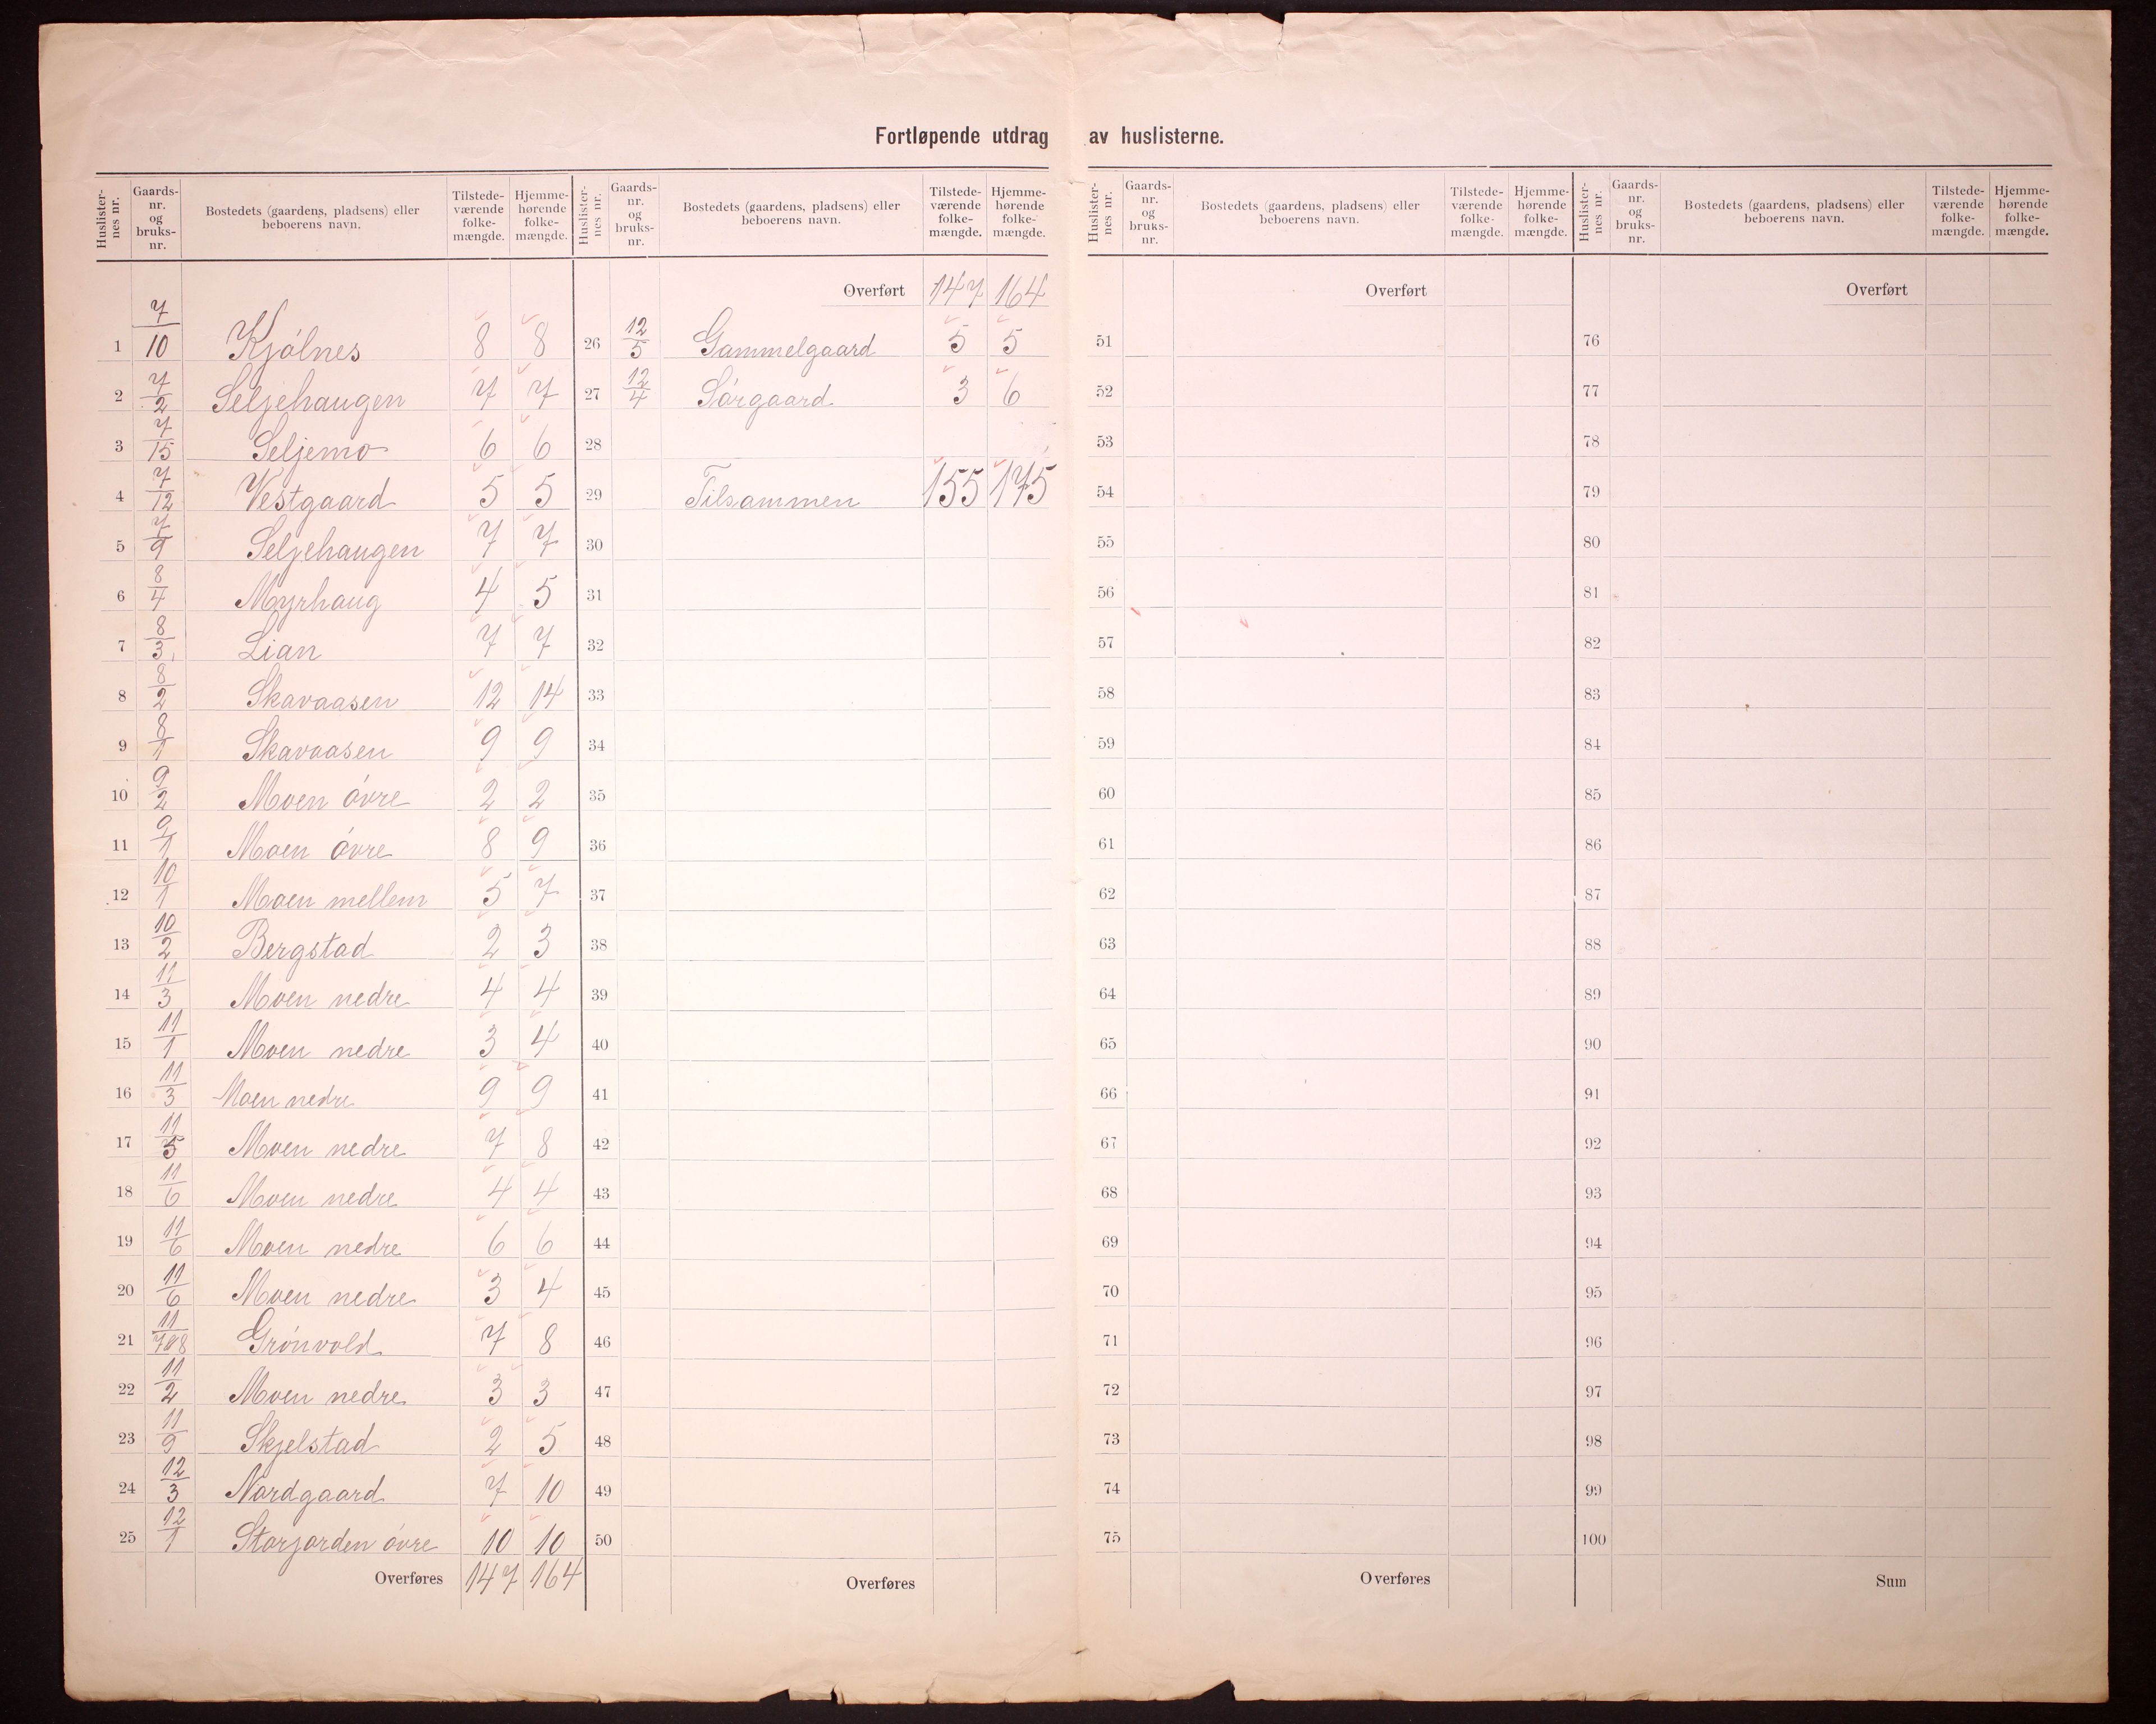 Fortløpende utdrag av huslisterne.
Huslister-nes nr. Gaards-nr. og bruks-nr. Bostedets (gaardens, pladsens) eller beboerens navn. Tilstede-værende folke-mængde. Hjemme-hørende folke-mængde.
1 7/10 Kjólnes 8 8
2 7/2 Seljehaugen 7 7
3 7/15 Seljemo 6 6
4 7/12 Vestgaard 5 5
5 7/9 Seljehaugen 7 7
6 8/4 Myrhaug 4 5
7 8/3 Lian 7 7
8 8/2 Skavaasen 12 14
9 8/1 Skavaasen 9 9
10 9/2 Moen óvre 2 2
11 9/1 Moen óvre 8 9
12 10/1 Moen mellem 5 7
13 10/2 Bergstad 2 3
14 11/3 Moen nedre 4 4
15 11/1 Moen nedre 3 4
16 11/3 Moen nedre 9 9
17 11/5 Moen nedre 7 8
18 11/6 Moen nedre 4 4
19 11/6 Moen nedre 6 6
20 11/6 Moen nedre 3 4
21 Grónvold 7 8
22 11/2 Moen nedre 3 3
23 11/9 Skjelstad 2 5
24 12/3 Nordgaard 7 10
25 12/1 Storjorden óvre 10 10
Overføres 147 164
Huslister-nes nr. Gaards-nr. og bruks-nr. Bostedets (gaardens, pladsens) eller beboerens navn. Tilstede-værende folke-mængde. Hjemme-hørende folke-mængde.
Overført 147 164
26 12/5 Gammelgaard 5 5
27 12/4 Sórgaard 3 6
28
29 Tilsammen 155 175
30
31
32
33
34
35
36
37
38
39
40
41
42
43
44
45
46
47
48
49
50
Overføres
Huslister-nes nr. Gaards-nr. og bruks-nr. Bostedets (gaardens, pladsens) eller beboerens navn. Tilstede-værende folke-mængde. Hjemme-hørende folke-mængde.
Overført
51
52
53
54
55
56
57
58
59
60
61
62
63
64
65
66
67
68
69
70
71
72
73
74
75
Overføres
Huslister-nes nr. Gaards-nr. og bruks-nr. Bostedets (gaardens, pladsens) eller beboerens navn. Tilstede-værende folke-mængde. Hjemme-hørende folke-mængde.
Overført
76
77
78
79
80
81
82
83
84
85
86
87
88
89
90
91
92
93
94
95
96
97
98
99
100
Sum